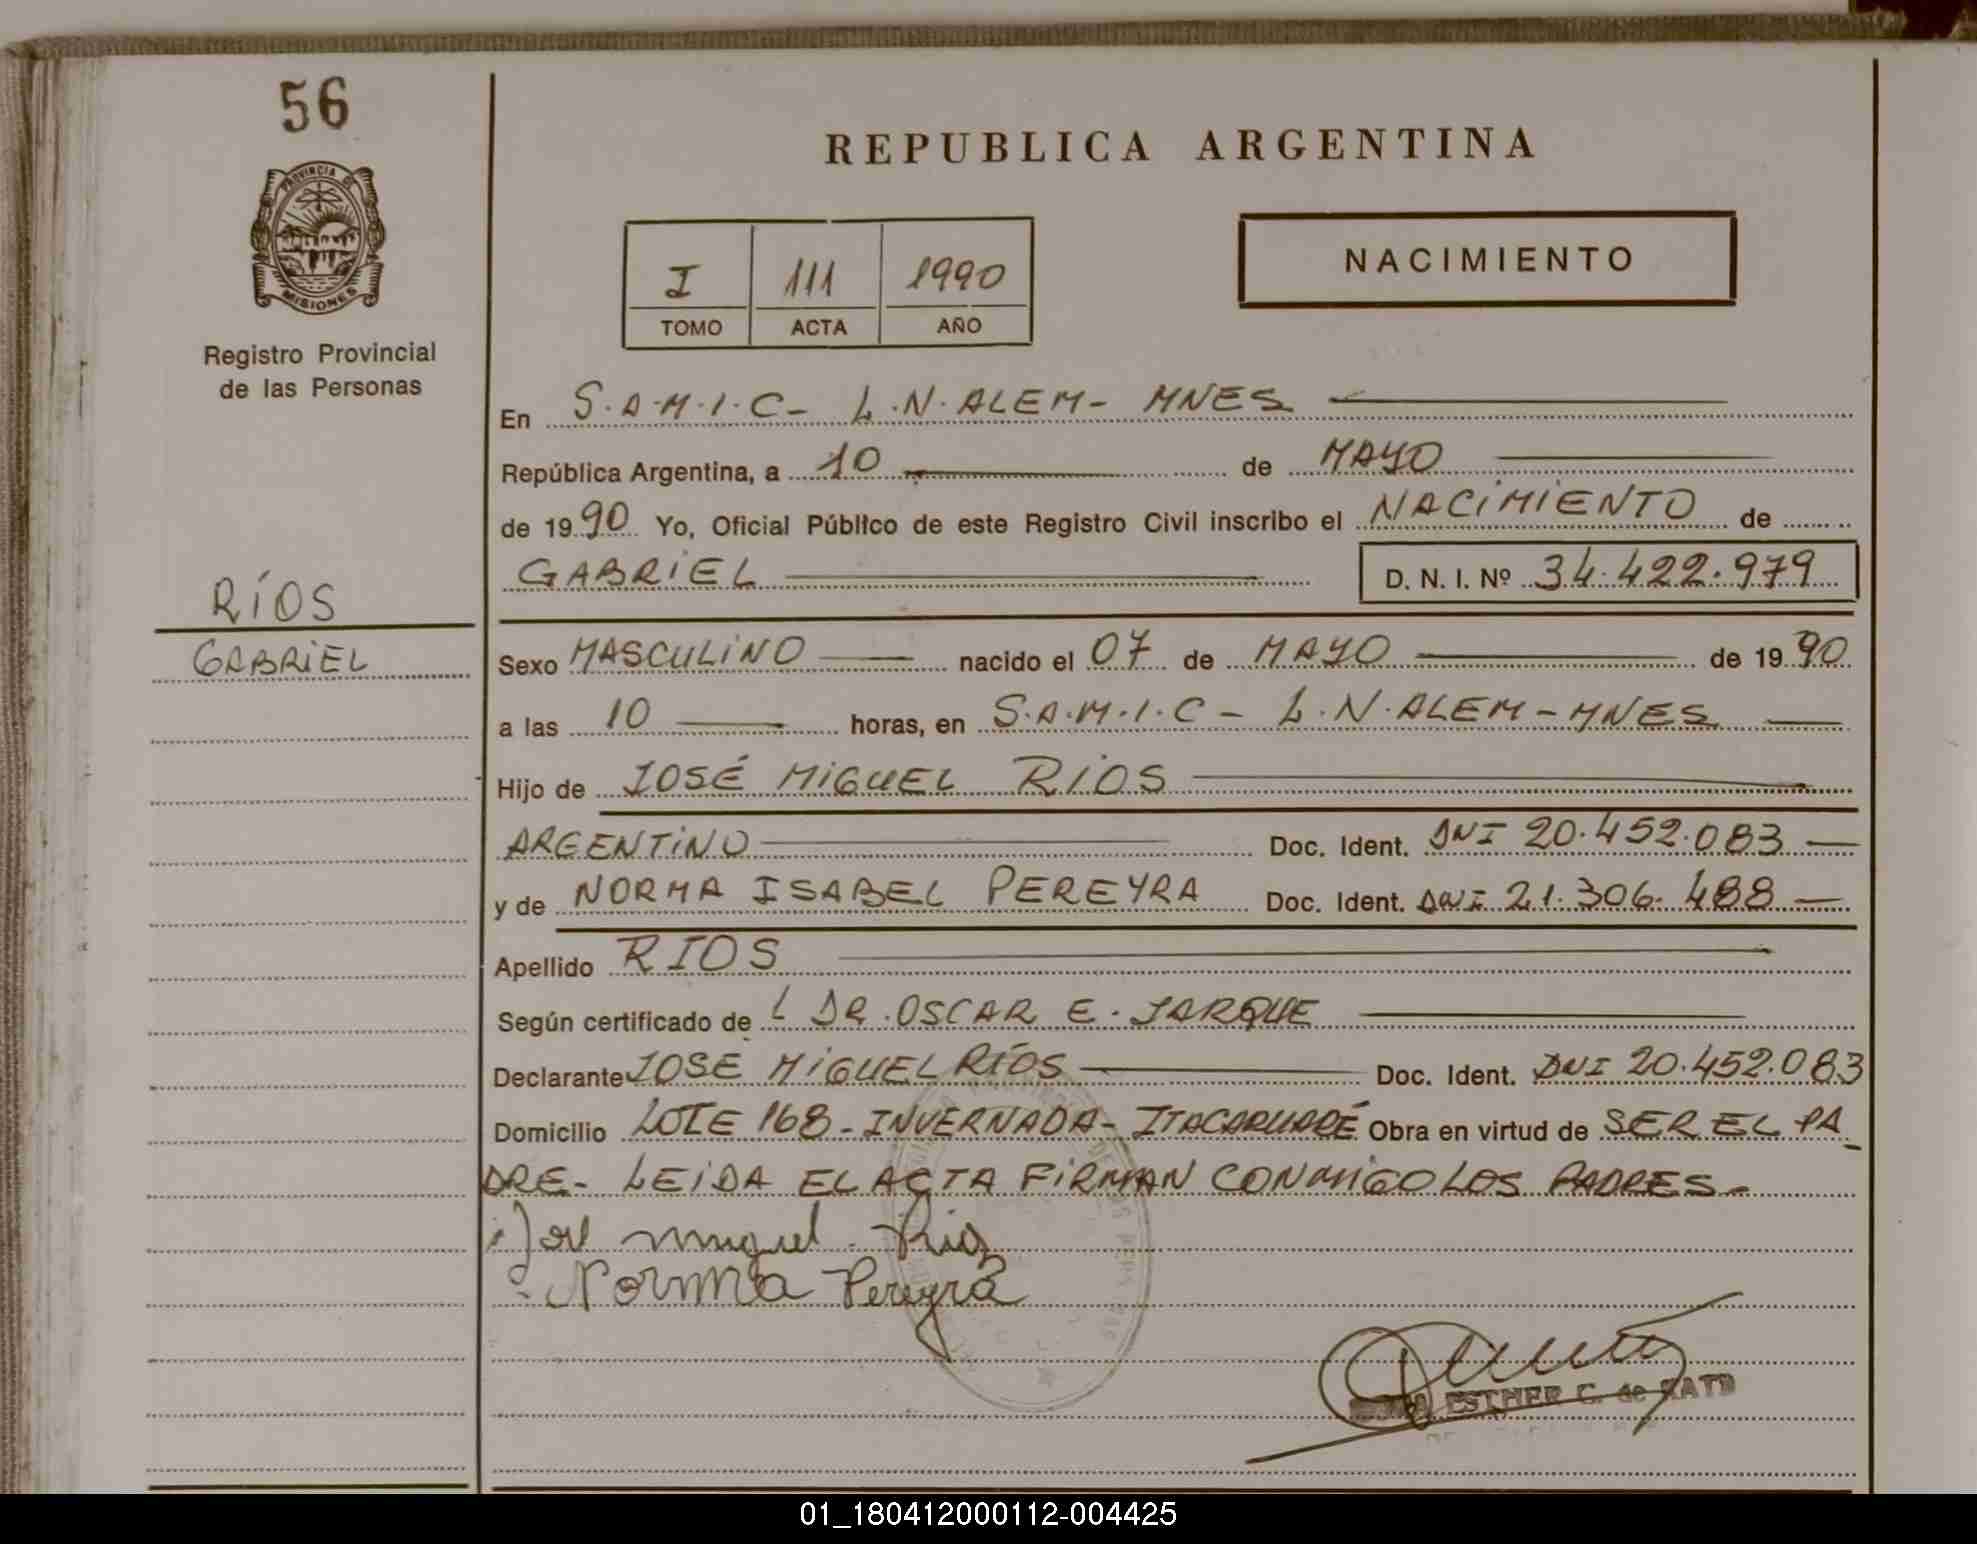 56
REPUBLICA ARGENTINA
PROVINCIA DE
MISIONES
Registro Provincial
de las Personas
I 111 1990
TOMO ACTA AÑO
NACIMIENTO
En S.A.M.I.C- L.N.ALEM- MNES
República Argentina, a 10 de MAYO
de 1990 Yo, Oficial Público de este Registro Civil inscribo el NACIMIENTO de
GABRIEL D. N. I. Nº 34.422.979
RÍOS
GABRIEL
Sexo MASCULINO nacido el 07 de MAYO de 1990
a las 10 horas, en S.A.M.I.C - L.N.ALEM - MNES
Hijo de JOSÉ MIGUEL RÍOS
ARGENTINO Doc. Ident. DNI 20.452.083
y de NORMA ISABEL PEREYRA Doc. Ident. DNI 21.306.488
Apellido RIOS
Según certificado de L DR. OSCAR E. JARQUE
Declarante JOSE MIGUEL RÍOS Doc. Ident. DNI 20.452.083
Domicilio LOTE 168 - INVERNADA - ITACARUARÉ Obra en virtud de SER EL PA
DRE- LEIDA EL ACTA FIRMAN CONMIGO LOS PADRES-
Norma Pereyra
ESTHER C. de
01_180412000112-004425